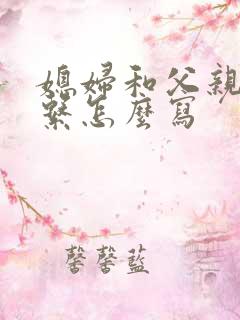 媳婦和父親
繫怎麼寫
馨馨藍